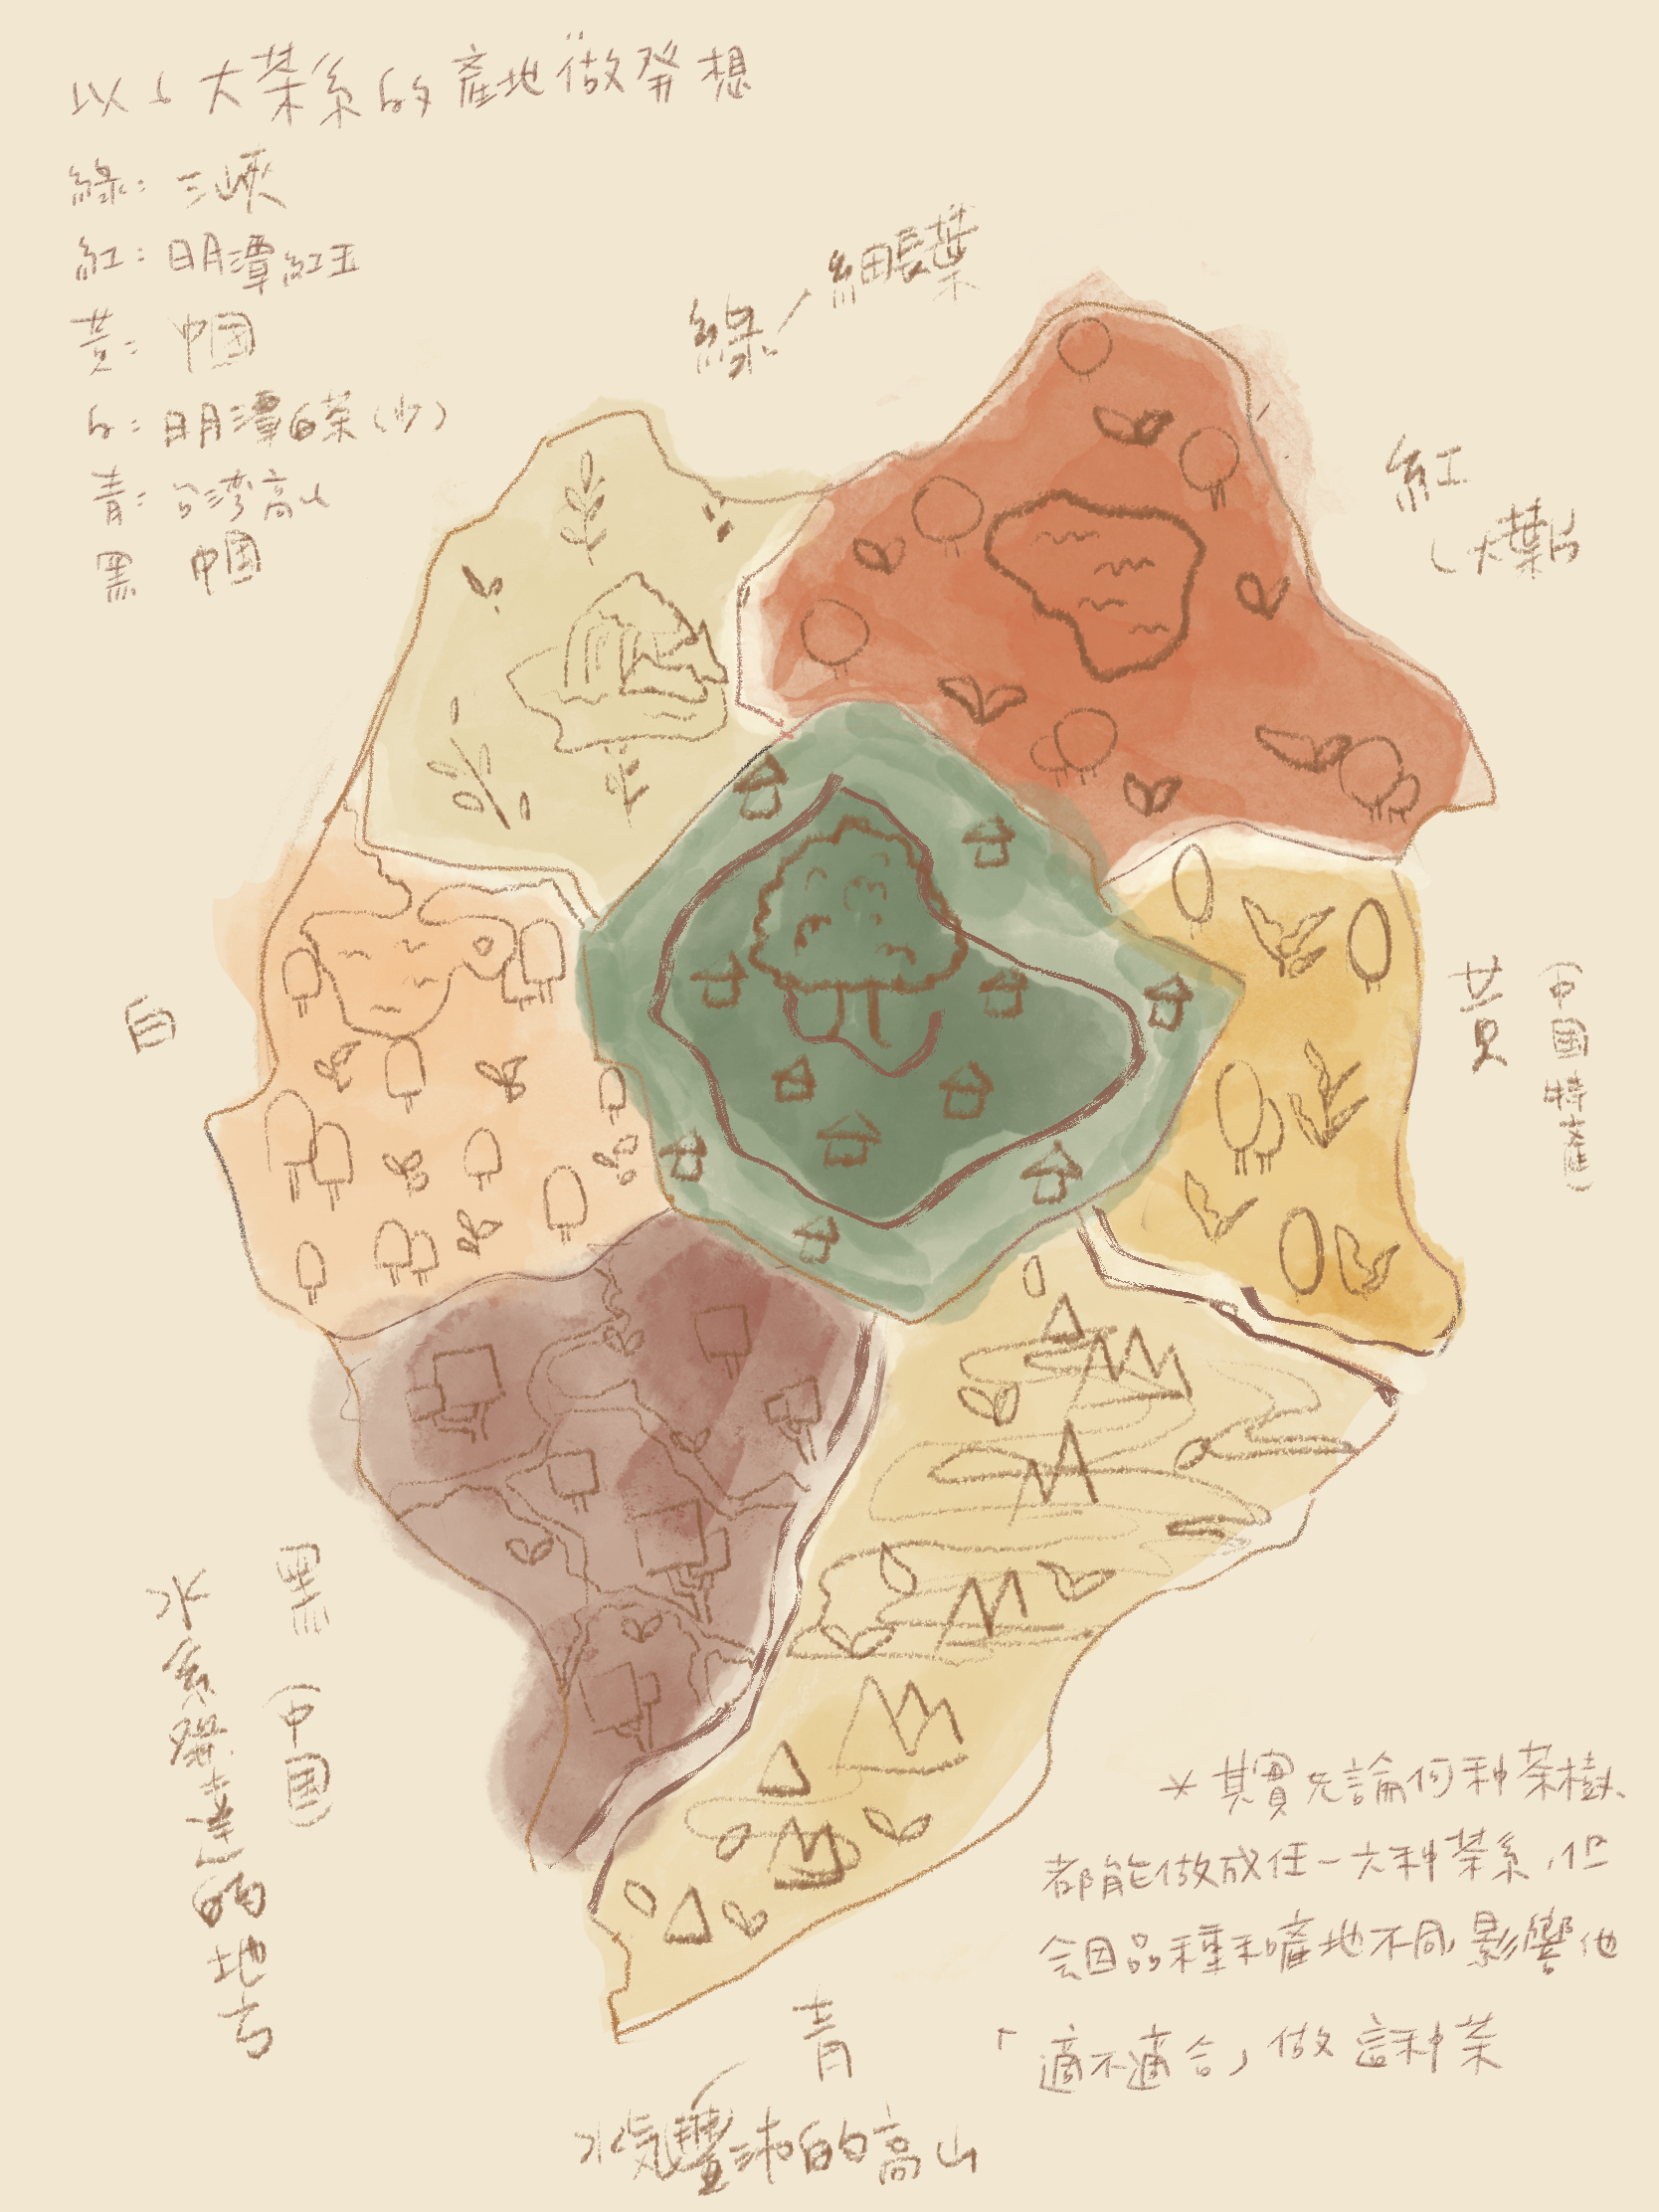 以6大茶系的"產地"做発想
綠：三峽
紅：明潭紅玉
黃：中国
白：明潭白茶（少）
青：台湾高山
黑 中国
綠 細長葉
紅
大葉片
白
黃（中国特產）
黑（中国）
水系發達的地方
青
水気豐沛的高山
＊其實无論何种茶樹
都能做成任一大种茶系，但
会因品種和產地不同，影響他
「適不適合」做這种茶